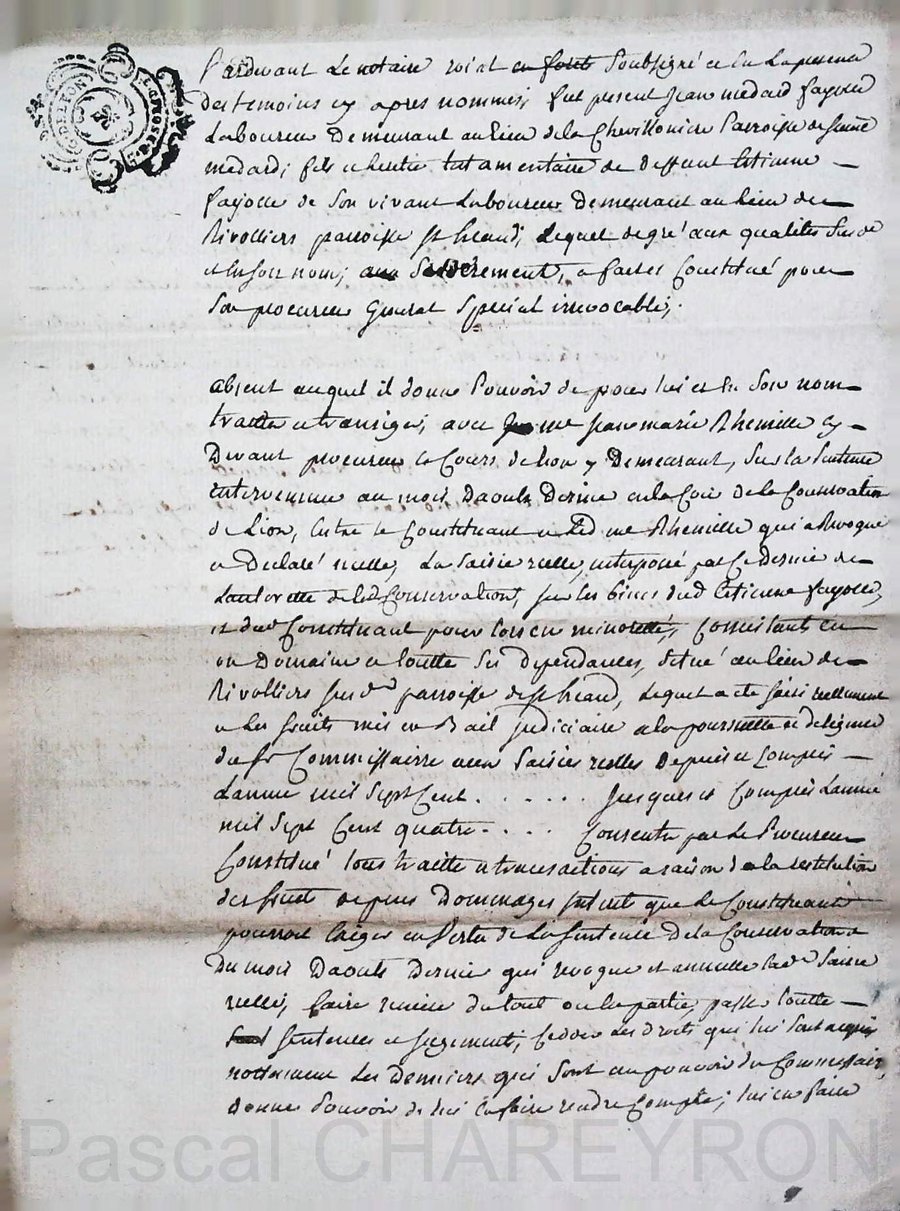 Pardevant Le notaire roial en forets Soubsigné et en La presence
des temoins cy apres nommes; fut present Jean medard fayolle
Laboureur Demeurant au lieu de la Chevillonière Parroisse de saint
medard; fils et heritier testamentaire de Deffunt Etienne
fayolle de Son vivant Laboureur Demeurant au lieu de
Rivolliers parroisse St heand; Lequel de gré aux qualités Susd
et en Son nom; Sollidairement, a fait et Constitué pour
Son procureur General Special irrevocable;
absent auquel il donne Pouvoir de pour lui et en Son nom
traitter et transiger; avec me Jean marie Rhenille cy
Devant procureur es Cours de Lion y Demeurant, Sur La Sentence
intervenue au mois Daoust Dernier en la Cour de La Conservation
de Lion, Entre le Constituant et Led me Rhenille qui a Revoqué
et Declaré nulle, La Saisie reelle, interposée par Ce Dernier de
Lautorité de lad Conservation, Sur les biens dud Etienne fayolle,
et dud Constituant pour lors en minorité, Consistants en
un Domaine et toutte Ses dependances, Situé au lieu de
Rivolliers Susd parroisse de St heand, Lequel a eté Saisi reellement
et Les fruits mis en Bail judiciaire a la poursuitte et deligence
du Sr Commissaire aux Saisies reelles Depuis et Compris
Lannée mil Sept Cent . . . . . . Jusques et Compris Lannée
mil Sept Cent quatre . . . . Consentir par Le Procureur
Constitué tous traitté et transactions a raison de la restitution
des fruits Depens Dommages Interets que Le Constituant
pourroit Exiger en Vertu de La Sentence De la Conservation
Du mois Daoust Dernier qui revoque et annulle lad Saisie
reelle, faire remise du tout ou en partie, passer toutte
Sentences et Jugements, Cedder Les droits qui lui Sont acquis
nottament Les Deniers qui Sont au pouvoir du Commissaire,
Donne Pouvoir de lui En faire rendre Compte; lui en faire
Pascal CHAREYRON